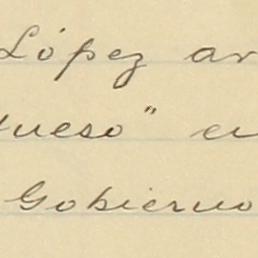 López ar
ueso" en
Gobierno